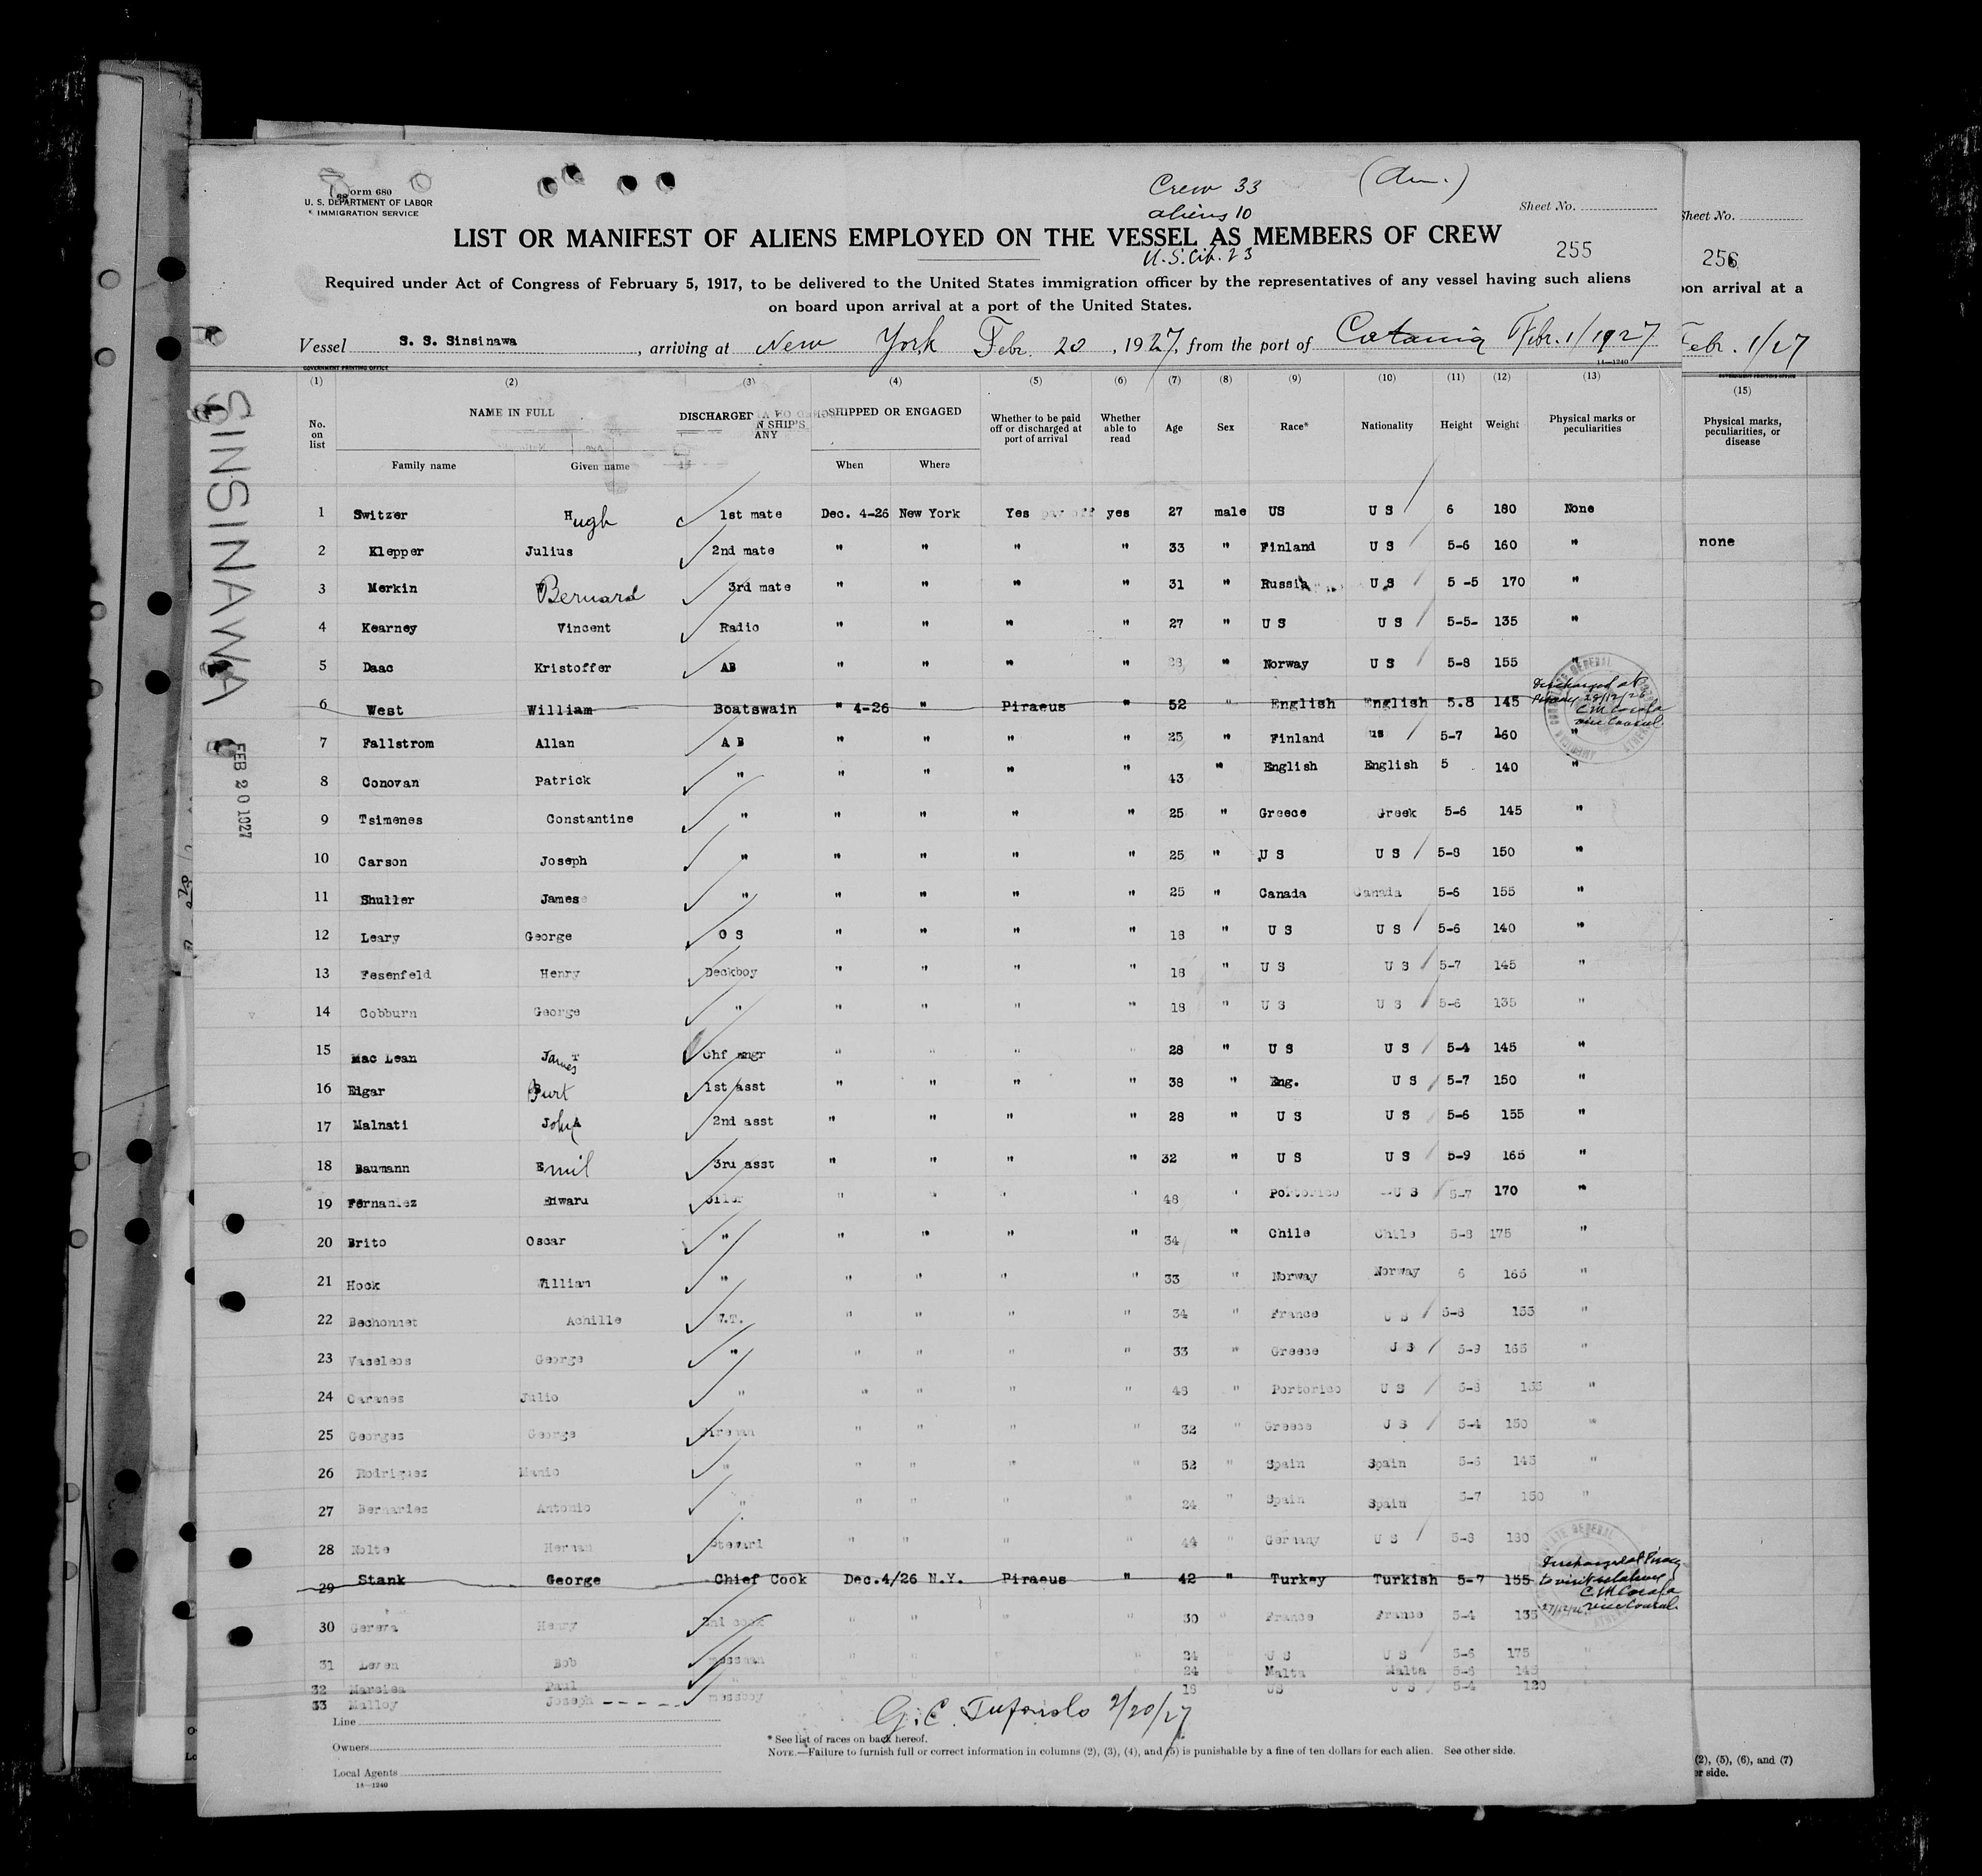 Form 680
U. S. DEPARTMENT OF LABOR
IMMIGRATION SERVICE
Crew 33
aliens 10
U.S. Cit. 23
Sheet No.
LIST OR MANIFEST OF ALIENS EMPLOYED ON THE VESSEL AS MEMBERS OF CREW
255
Required under Act of Congress of February 5, 1917, to be delivered to the United States immigration officer by the representatives of any vessel having such aliens
on board upon arrival at a port of the United States.
Vessel S. S. Sinsinawa, arriving at New York Febr. 20, 1927, from the port of Catania Febr. 1/1927
GOVERNMENT PRINTING OFFICE 14—1240
(1) (2) (3) (4) (5) (6) (7) (8) (9) (10) (11) (12) (13)
No. on list NAME IN FULL Family name Given name DISCHARGED N SHIP'S ANY SHIPPED OR ENGAGED When Where Whether to be paid off or discharged at port of arrival Whether able to read Age Sex Race* Nationality Height Weight Physical marks or peculiarities
1 Switzer Hugh 1st mate Dec. 4-26 New York Yes pay off yes 27 male US U S 6 180 None
2 Klepper Julius 2nd mate " " " " 33 " Finland U S 5-6 160 "
3 Merkin Bernard 3rd mate " " " " 31 " Russia U S 5-5 170 "
4 Kearney Vincent Radio " " " " 27 " U S U S 5-5- 135 "
5 Daac Kristoffer AB " " " " 28 " Norway U S 5-8 155 "
6 West William Boatswain " 4-26 " Piraeus " 52 " English English 5.8 145 Discharged at Piraeus 28/12/26 vice Consul
7 Fallstrom Allan A B " " " " 25 " Finland us 5-7 160 "
8 Conovan Patrick " " " " " 43 " English English 5 140 "
9 Tsimenes Constantine " " " " " 25 " Greece Greek 5-6 145 "
10 Carson Joseph " " " " " 25 " U S U S 5-8 150 "
11 Shuller James " " " " " 25 " Canada Canada 5-6 155 "
12 Leary George O S " " " " 18 " U S U S 5-6 140 "
13 Fesenfeld Henry Deckboy " " " " 18 " U S U S 5-7 145 "
14 Cobburn George " " " " " 18 " U S U S 5-6 135 "
15 Mac Lean James Chf engr " " " " 28 " U S U S 5-4 145 "
16 Elgar Burt 1st asst " " " " 38 " Eng. U S 5-7 150 "
17 Malnati John 2nd asst " " " " 28 " U S U S 5-6 155 "
18 Baumann Emil 3rd asst " " " " 32 " U S U S 5-9 165 "
19 Fernandez Edward Oiler " " " " 48 " Portorico U S 5-7 170 "
20 Brito Oscar " " " " " 34 " Chile Chile 5-8 175 "
21 Hock William " " " " " 33 " Norway Norway 6 165 "
22 Bechonnet Achille W.T. " " " " 34 " France U S 5-8 155 "
23 Vaseleos George " " " " " 33 " Greece U S 5-9 165 "
24 Julio " " " " " 48 " Portorico U S 5-8 155 "
25 Georges George Fireman " " " " 32 " Greece U S 5-4 150 "
26 Rodriguez Manio " " " " " 52 " Spain Spain 5-6 145 "
27 Bernardez Antonio " " " " " 24 " Spain Spain 5-7 150 "
28 Nolte Herman Steward " " " " 44 " Germany U S 5-8 180
29 Stank George Chief Cook Dec.4/26 N.Y. Piraeus " 42 " Turkey Turkish 5-7 155 Discharged at Piraeus to visit relatives 27/12/26 vice Consul
30 Gerera Henry 2nd cook " " " " 30 " France France 5-4 135
31 Leven Bob messman " " " " 24 " U S U S 5-6 175 "
32 Marciea Paul " 24 Malta Malta 5-6 145
33 Malloy Joseph ---- messboy 18 US U S 5-4 120
Line
Owners
Local Agents
14—1240
2/20/27
* See list of races on back hereof.
NOTE.—Failure to furnish full or correct information in columns (2), (3), (4), and (5) is punishable by a fine of ten dollars for each alien. See other side.
SINSINAWA
FEB 20 1927
Sheet No.
256
on arrival at a
Febr. 1/27
(15)
Physical marks, peculiarities, or disease
none
(2), (5), (6), and (7)
er side.